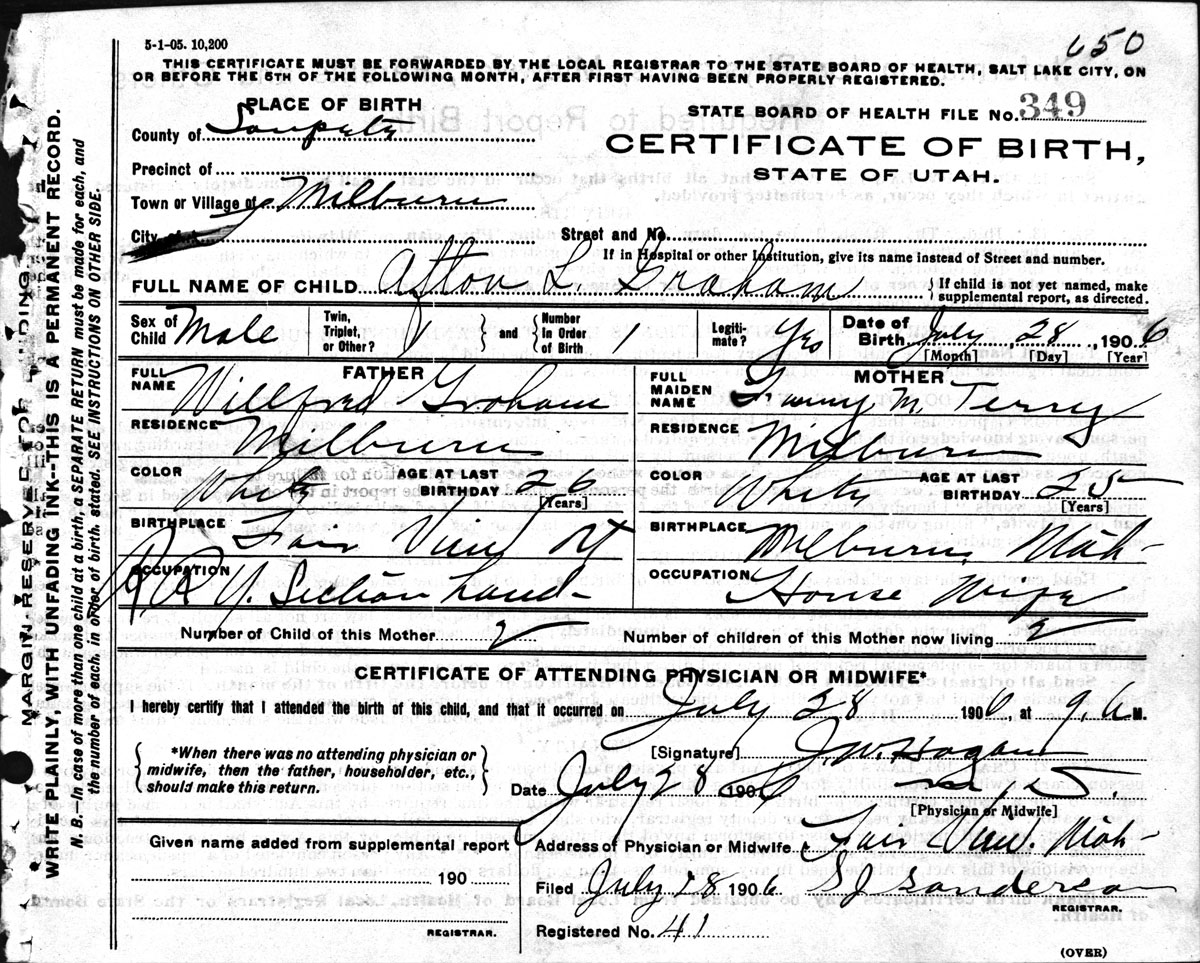 650
5-1-05. 10,200
THIS CERTIFICATE MUST BE FORWARDED BY THE LOCAL REGISTRAR TO THE STATE BOARD OF HEALTH, SALT LAKE CITY, ON
OR BEFORE THE 5TH OF THE FOLLOWING MONTH, AFTER FIRST HAVING BEEN PROPERLY REGISTERED.
PLACE OF BIRTH
STATE BOARD OF HEALTH FILE No. 349
County of Sanpete
CERTIFICATE OF BIRTH,
STATE OF UTAH.
Precinct of
Town or Village of Milburn
City of Street and No.
If in Hospital or other Institution, give its name instead of Street and number.
FULL NAME OF CHILD Afton L. Graham { If child is not yet named, make supplemental report, as directed.
Sex of Child Male Twin, Triplet, or Other? } and { Number In Order of Birth 1 Legiti-mate? Yes Date of Birth July 28 1906
[Month] [Day] [Year]
FATHER MOTHER
FULL NAME Willfred Graham FULL MAIDEN NAME Fanny M. Terry
RESIDENCE Milburn RESIDENCE Milburn
COLOR White AGE AT LAST BIRTHDAY 26 [Years] COLOR White AGE AT LAST BIRTHDAY 25 [Years]
BIRTHPLACE Fair View Ut BIRTHPLACE Milburn, Utah
OCCUPATION R R Section hand OCCUPATION House Wife
Number of Child of this Mother 2 Number of children of this Mother now living 2
CERTIFICATE OF ATTENDING PHYSICIAN OR MIDWIFE*
I hereby certify that I attended the birth of this child, and that it occurred on July 28 1906, at 9. a M.
{ *When there was no attending physician or midwife, then the father, householder, etc., should make this return. }
[Signature] J.W. Hagan
Date July 28 1906
[Physician or Midwife]
Given name added from supplemental report
Address of Physician or Midwife Fair View. Utah
190
Filed July 28 1906 S J Sanderson
REGISTRAR.
REGISTRAR.
Registered No. 41
(OVER)
MARGIN RESERVED FOR BINDING
WRITE PLAINLY, WITH UNFADING INK--THIS IS A PERMANENT RECORD.
N. B.--In case of more than one child at a birth, a SEPARATE RETURN must be made for each, and
the number of each, in order of birth, stated. SEE INSTRUCTIONS ON OTHER SIDE.